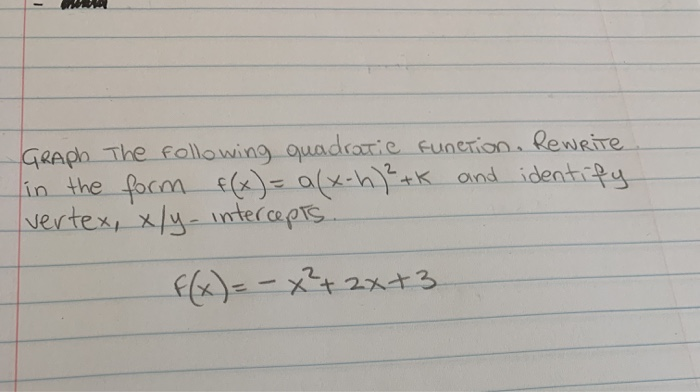 GRAph The following quadratic function. Rewrite
in the form f(x)= a(x-h)²+k and identify
vertex, x/y- intercepts.
f(x)= - x²+ 2x+3